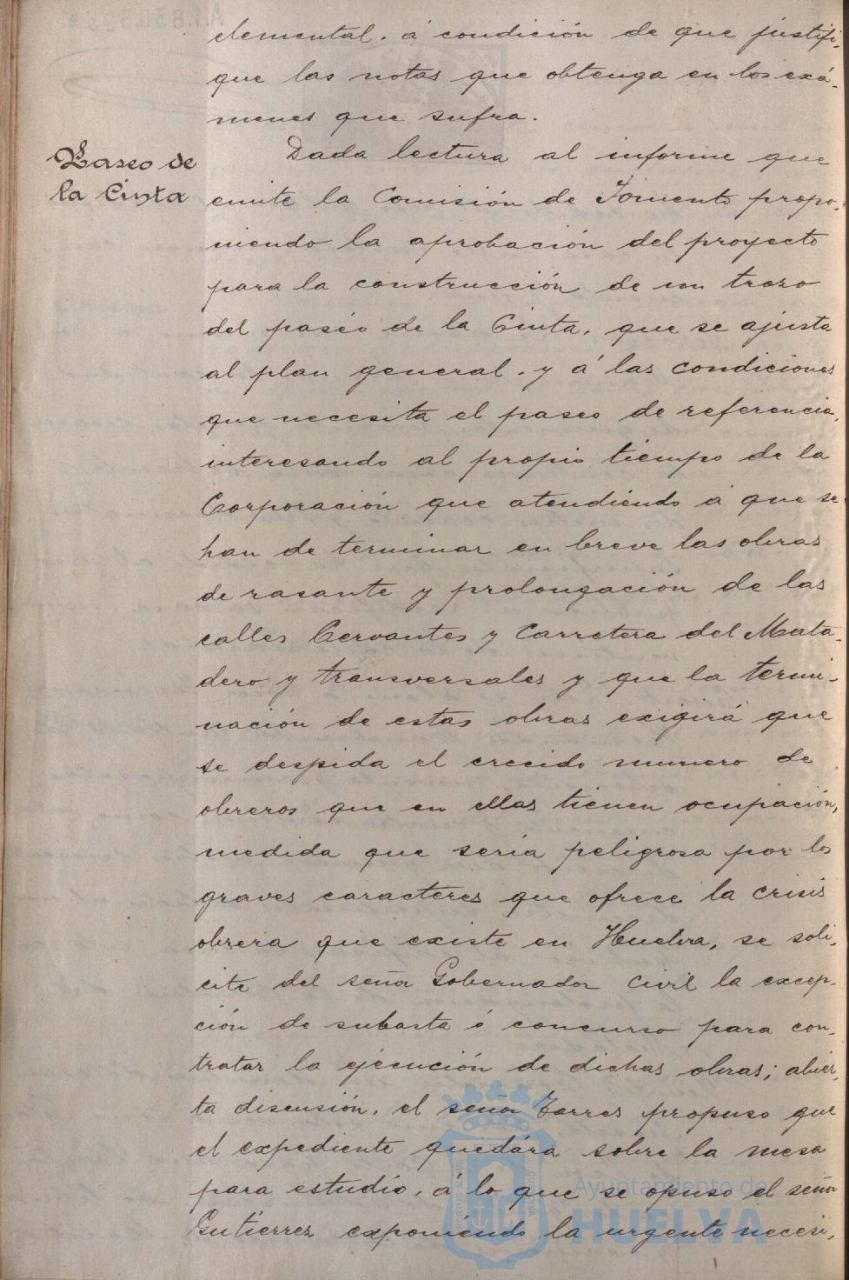 elemental. á condición de que justifi-
que las notas que obtenga en los exá-
menes que sufra.
Paseo de
la Cinta
Dada lectura al informe que
emite la Comisión de Fomento propo-
niendo la aprobación del proyecto
para la construcción de un trozo
del paséo de la Cinta, que se ajusta
al plan general. y á las condiciones
que necesita el paseo de referencia,
interesando al propio tiempo de la
Corporación que atendiendo á que se
han de terminar en breve las obras
de rasante y prolongación de las
calles Cervantes y Carretera del Mata-
dero y transversales y que la termi-
nación de estas obras exigirá que
se despida el crecido numero de
obreros que en ellas tienen ocupación,
medida que sería peligrosa por los
graves caracteres que ofrece la crisis
obrera que existe en Huelva, se soli-
cite del señor Gobernador Civil la excep-
ción de subasta ó concurso para con-
tratar la ejecución de dichas obras; abier-
ta discusión, el señor Torres propuso que
el expediente quedára sobre la mesa
para estudio, á lo que se opuso el señor
Gutierrez exponiendo la urgente necesi-
Ayuntamiento de
HUELVA